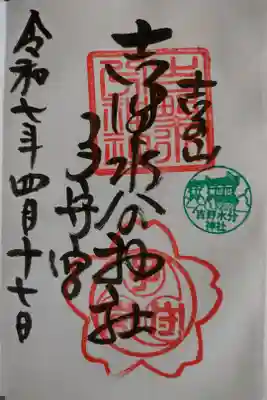 吉野山
吉野水分神社
子守宮
令和七年四月十七日
吉野水分
神社